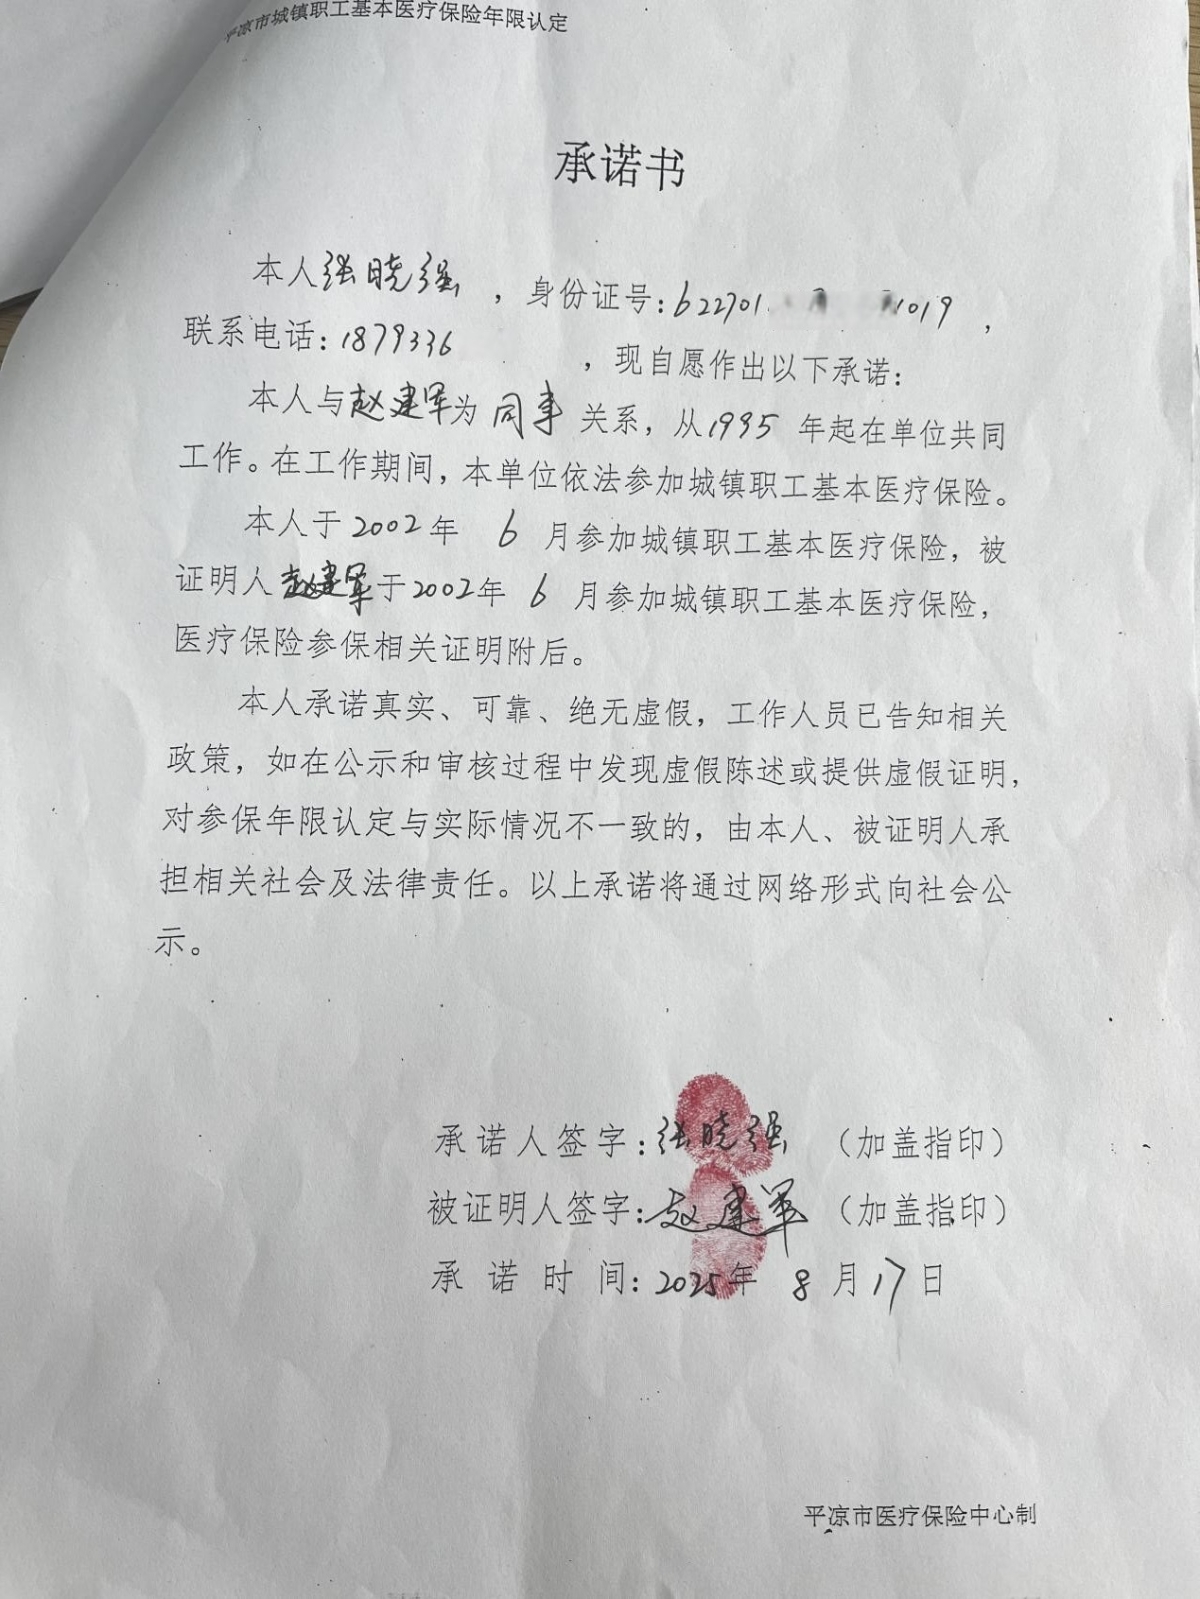 平凉市城镇职工基本医疗保险年限认定
承诺书
本人张晓强，身份证号：622701 1019，
联系电话：1879336 ，现自愿作出以下承诺：
本人与赵建军为同事关系，从1995年起在单位共同
工作。在工作期间，本单位依法参加城镇职工基本医疗保险。
本人于2002年6月参加城镇职工基本医疗保险，被
证明人赵建军于2002年6月参加城镇职工基本医疗保险，
医疗保险参保相关证明附后。
本人承诺真实、可靠、绝无虚假，工作人员已告知相关
政策，如在公示和审核过程中发现虚假陈述或提供虚假证明，
对参保年限认定与实际情况不一致的，由本人、被证明人承
担相关社会及法律责任。以上承诺将通过网络形式向社会公
示。
承诺人签字：张晓强（加盖指印）
被证明人签字：赵建军（加盖指印）
承诺时间：2025年8月17日
平凉市医疗保险中心制